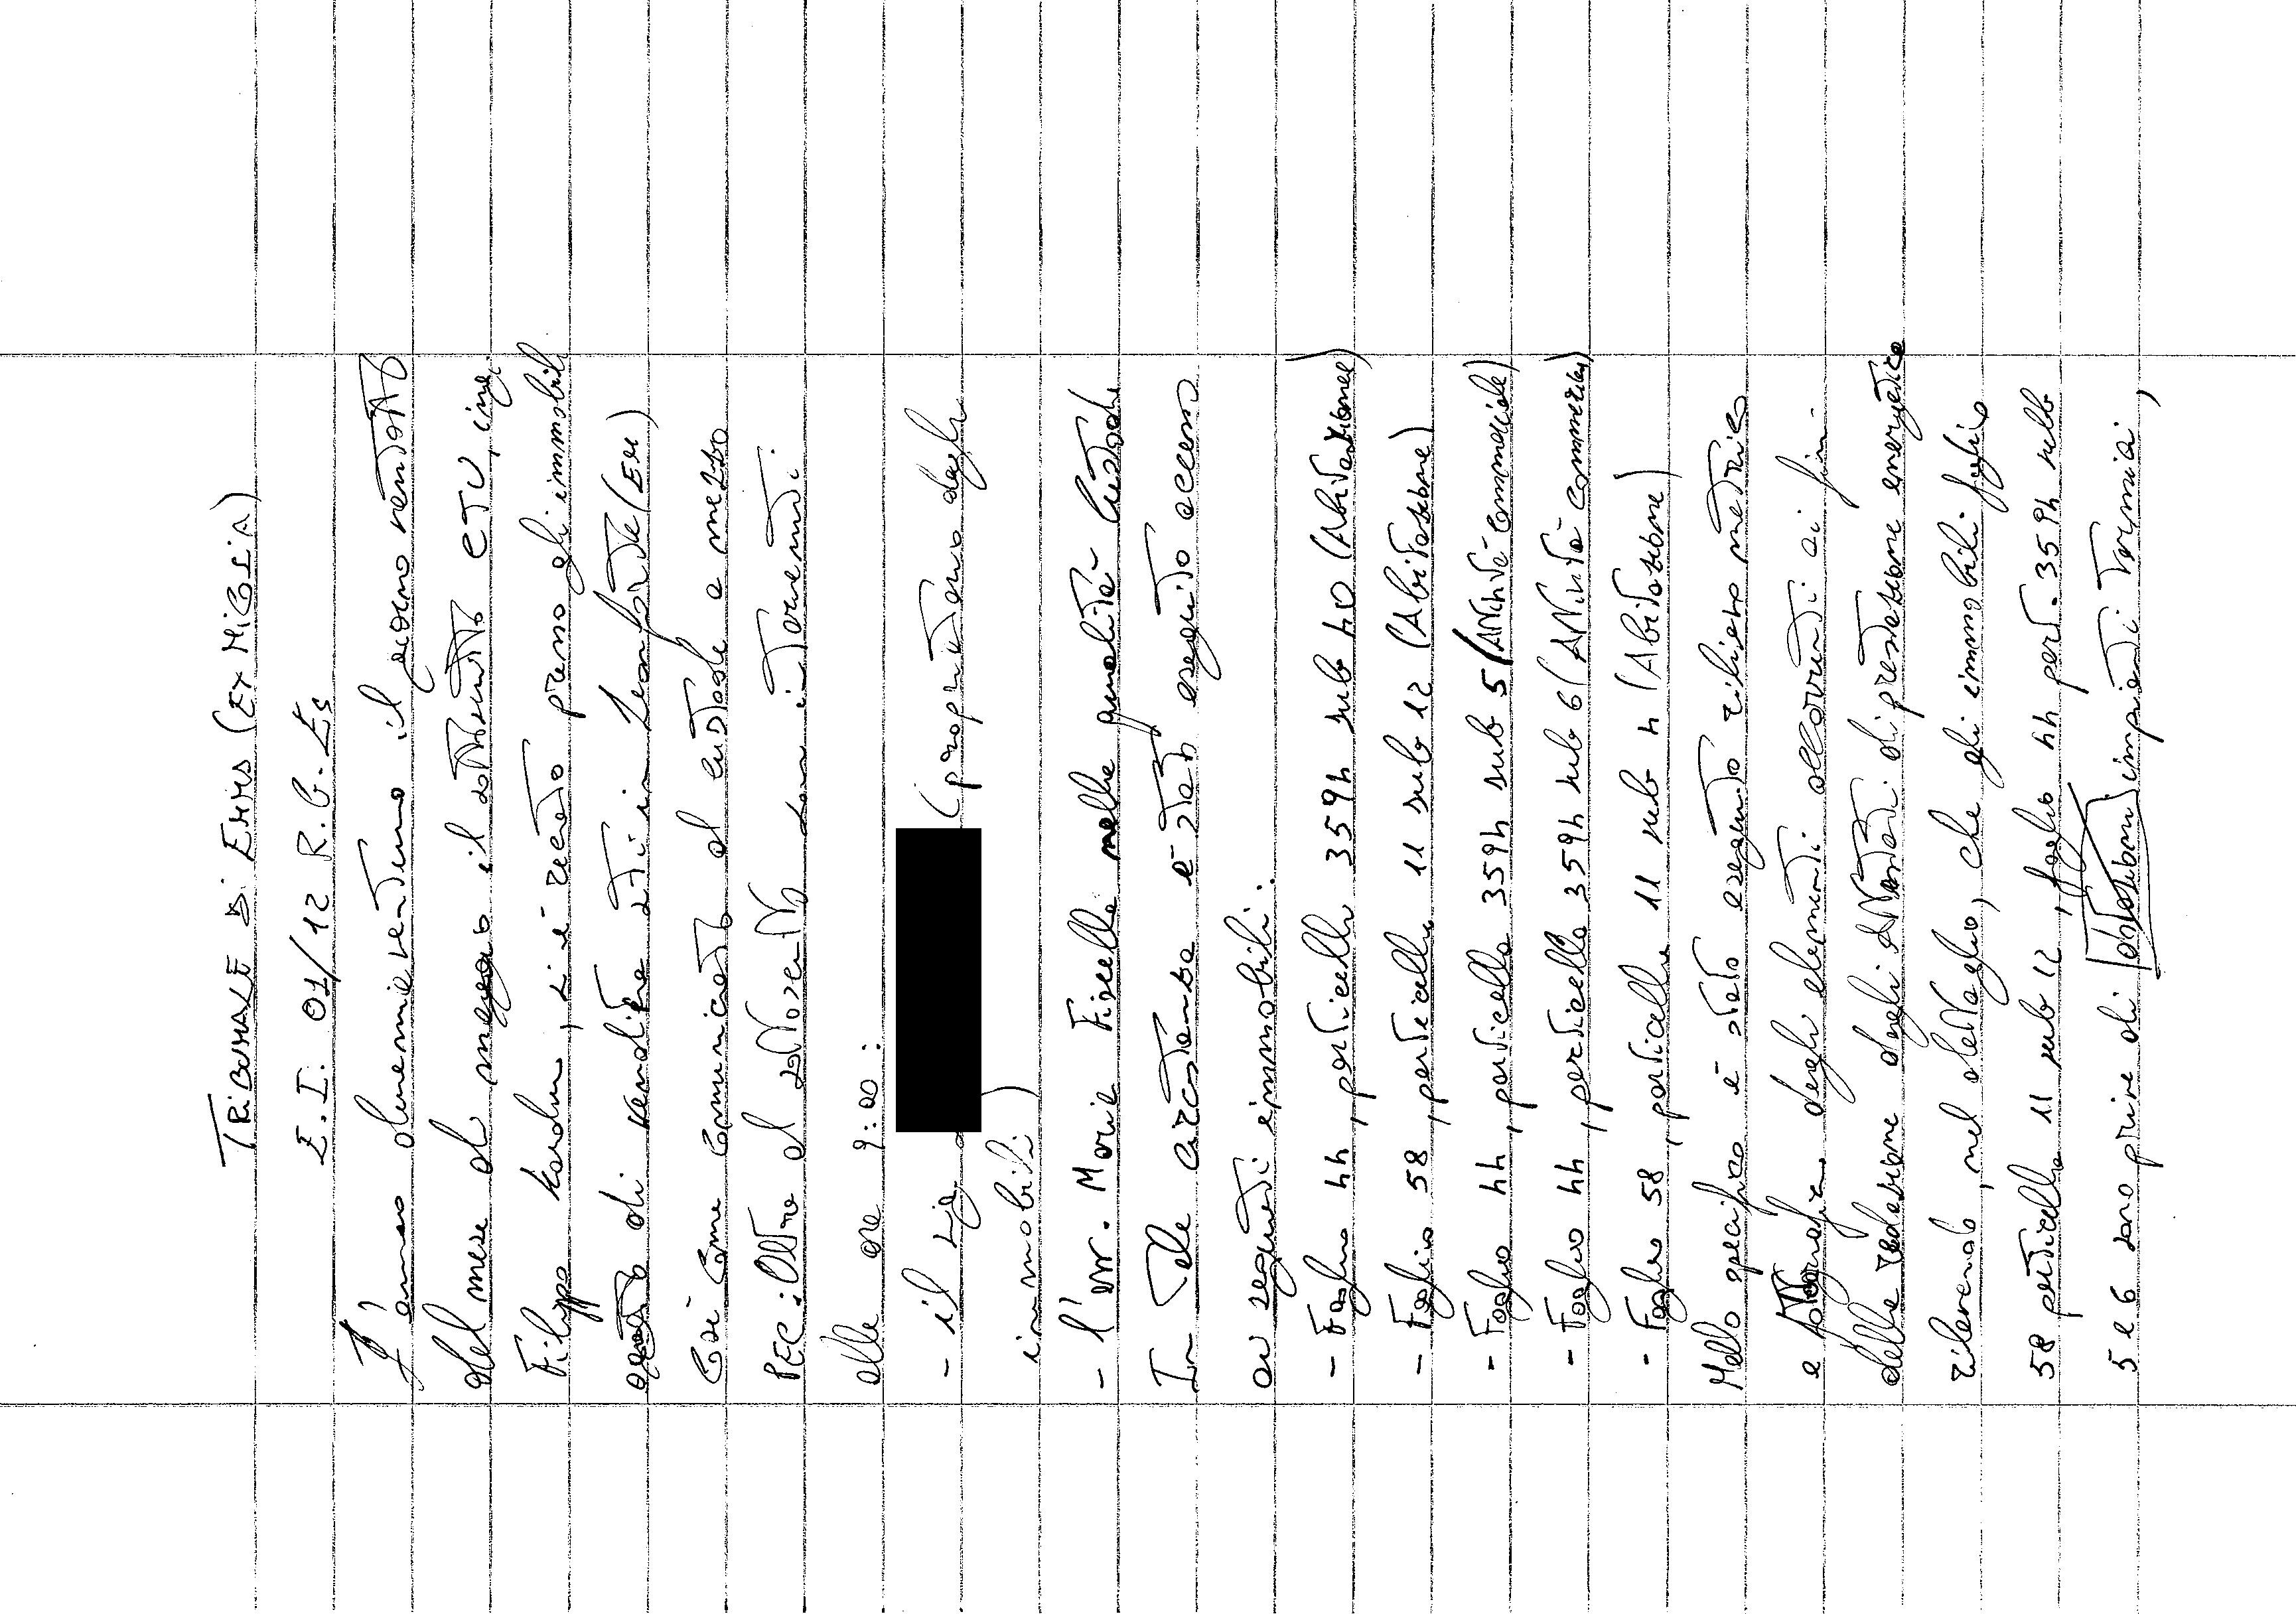 TRIBUNALE DI ENNA (EX NICOSIA)
E.I. 01/12 R.G. Es
L'anno duemilaventuno il giorno ventotto
del mese di maggio il sottoscritto CTU, ing.
Filippo, si è recato presso gli immobili
di vendita siti in Leonforte (EN)
Così come comunicato al custode a mezzo
PEC. Oltre al sottoscritto sono intervenuti
alle ore 9:00:
- il sig. (proprietario degli
immobili)
- l'avv. Maria Fiscella nella qualità Custode
In tale circostanza è stato eseguito accesso
ai seguenti immobili:
- Foglio 44, particella 3594 sub 40 (Abitazione)
- Foglio 58, particella 11 sub 12 (Abitazione)
- Foglio 44, particella 3594 sub 5 (Attività commerciale)
- Foglio 44, particella 3594 sub 6 (Attività commerciale)
- Foglio 58, particella 11 sub 4 (Abitazione)
Nello specifico è stato eseguito rilievo metrico
e fotografico degli elementi occorrenti ai fini
della redazione degli attestati di prestazione energetica
rilevando, nel dettaglio, che gli immobili foglio
58 particella 11 sub 12, foglio 44 part. 3594 sub
5 e 6 sono privi di impianti termici,